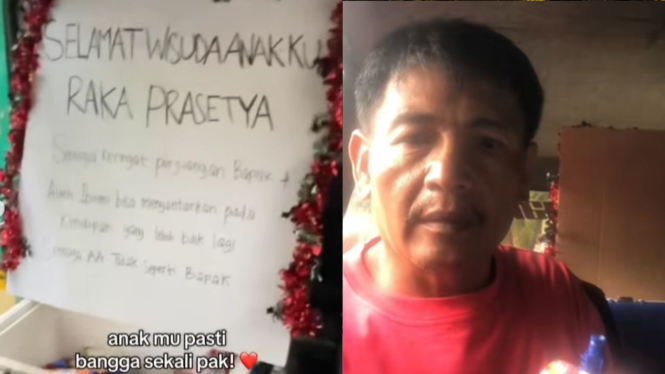 SELAMAT WISUDA ANAK KU
RAKA PRASETYA
Semoga keringat perjuangan Bapak +
Ibumi bisa mengantarkan pada
Kehidupan yang lebih baik lagi
Semoga AA Tidak Seperti Bapak
anak mu pasti
bangga sekali pak! ❤️